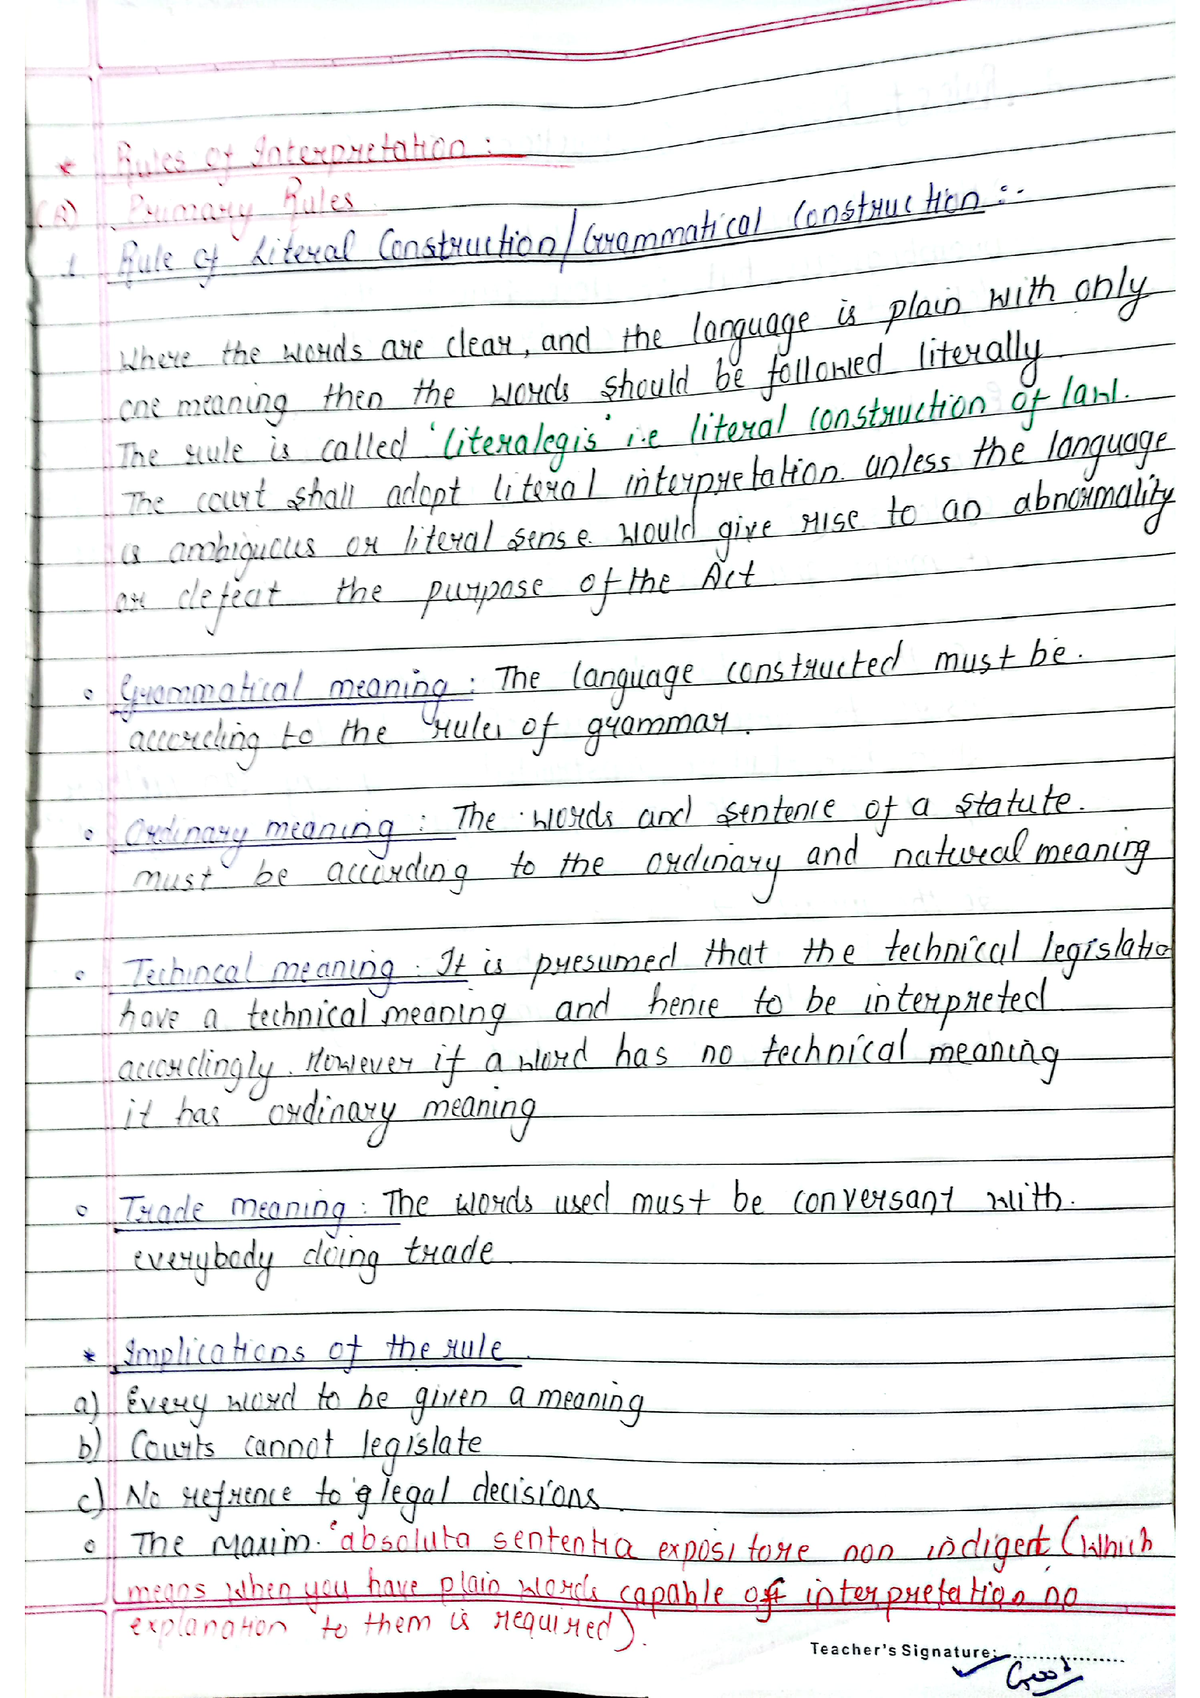 * Rules of Interpretation :
(A) Primary Rules
1. Rule of Literal Construction/Grammatical Construction :-
Where the words are clear, and the language is plain with only
one meaning then the words should be followed literally
The rule is called 'literalegis' i.e literal construction of law.
The court shall adopt literal interpretation unless the language
is ambiguous or literal sense would give rise to an abnormality
or defeat the purpose of the Act
o Grammatical meaning : The language constructed must be.
according to the rules of grammar.
o Ordinary meaning : The words and sentence of a statute.
must be according to the ordinary and natural meaning
o Techincal meaning : It is presumed that the technical legislatio
have a technical meaning and hence to be interpreted
accordingly. However if a word has no technical meaning
it has ordinary meaning
o Trade meaning : The words used must be conversant with.
everybody doing trade
* Implications of the rule
a) Every word to be given a meaning
b) Courts cannot legislate
c) No refrence to legal decisions
o The Maxim 'absoluta sententia expositore non indigent (Which
means when you have plain words capable off interpretation no
explanation to them is required).
Teacher's Signature:..................
Good